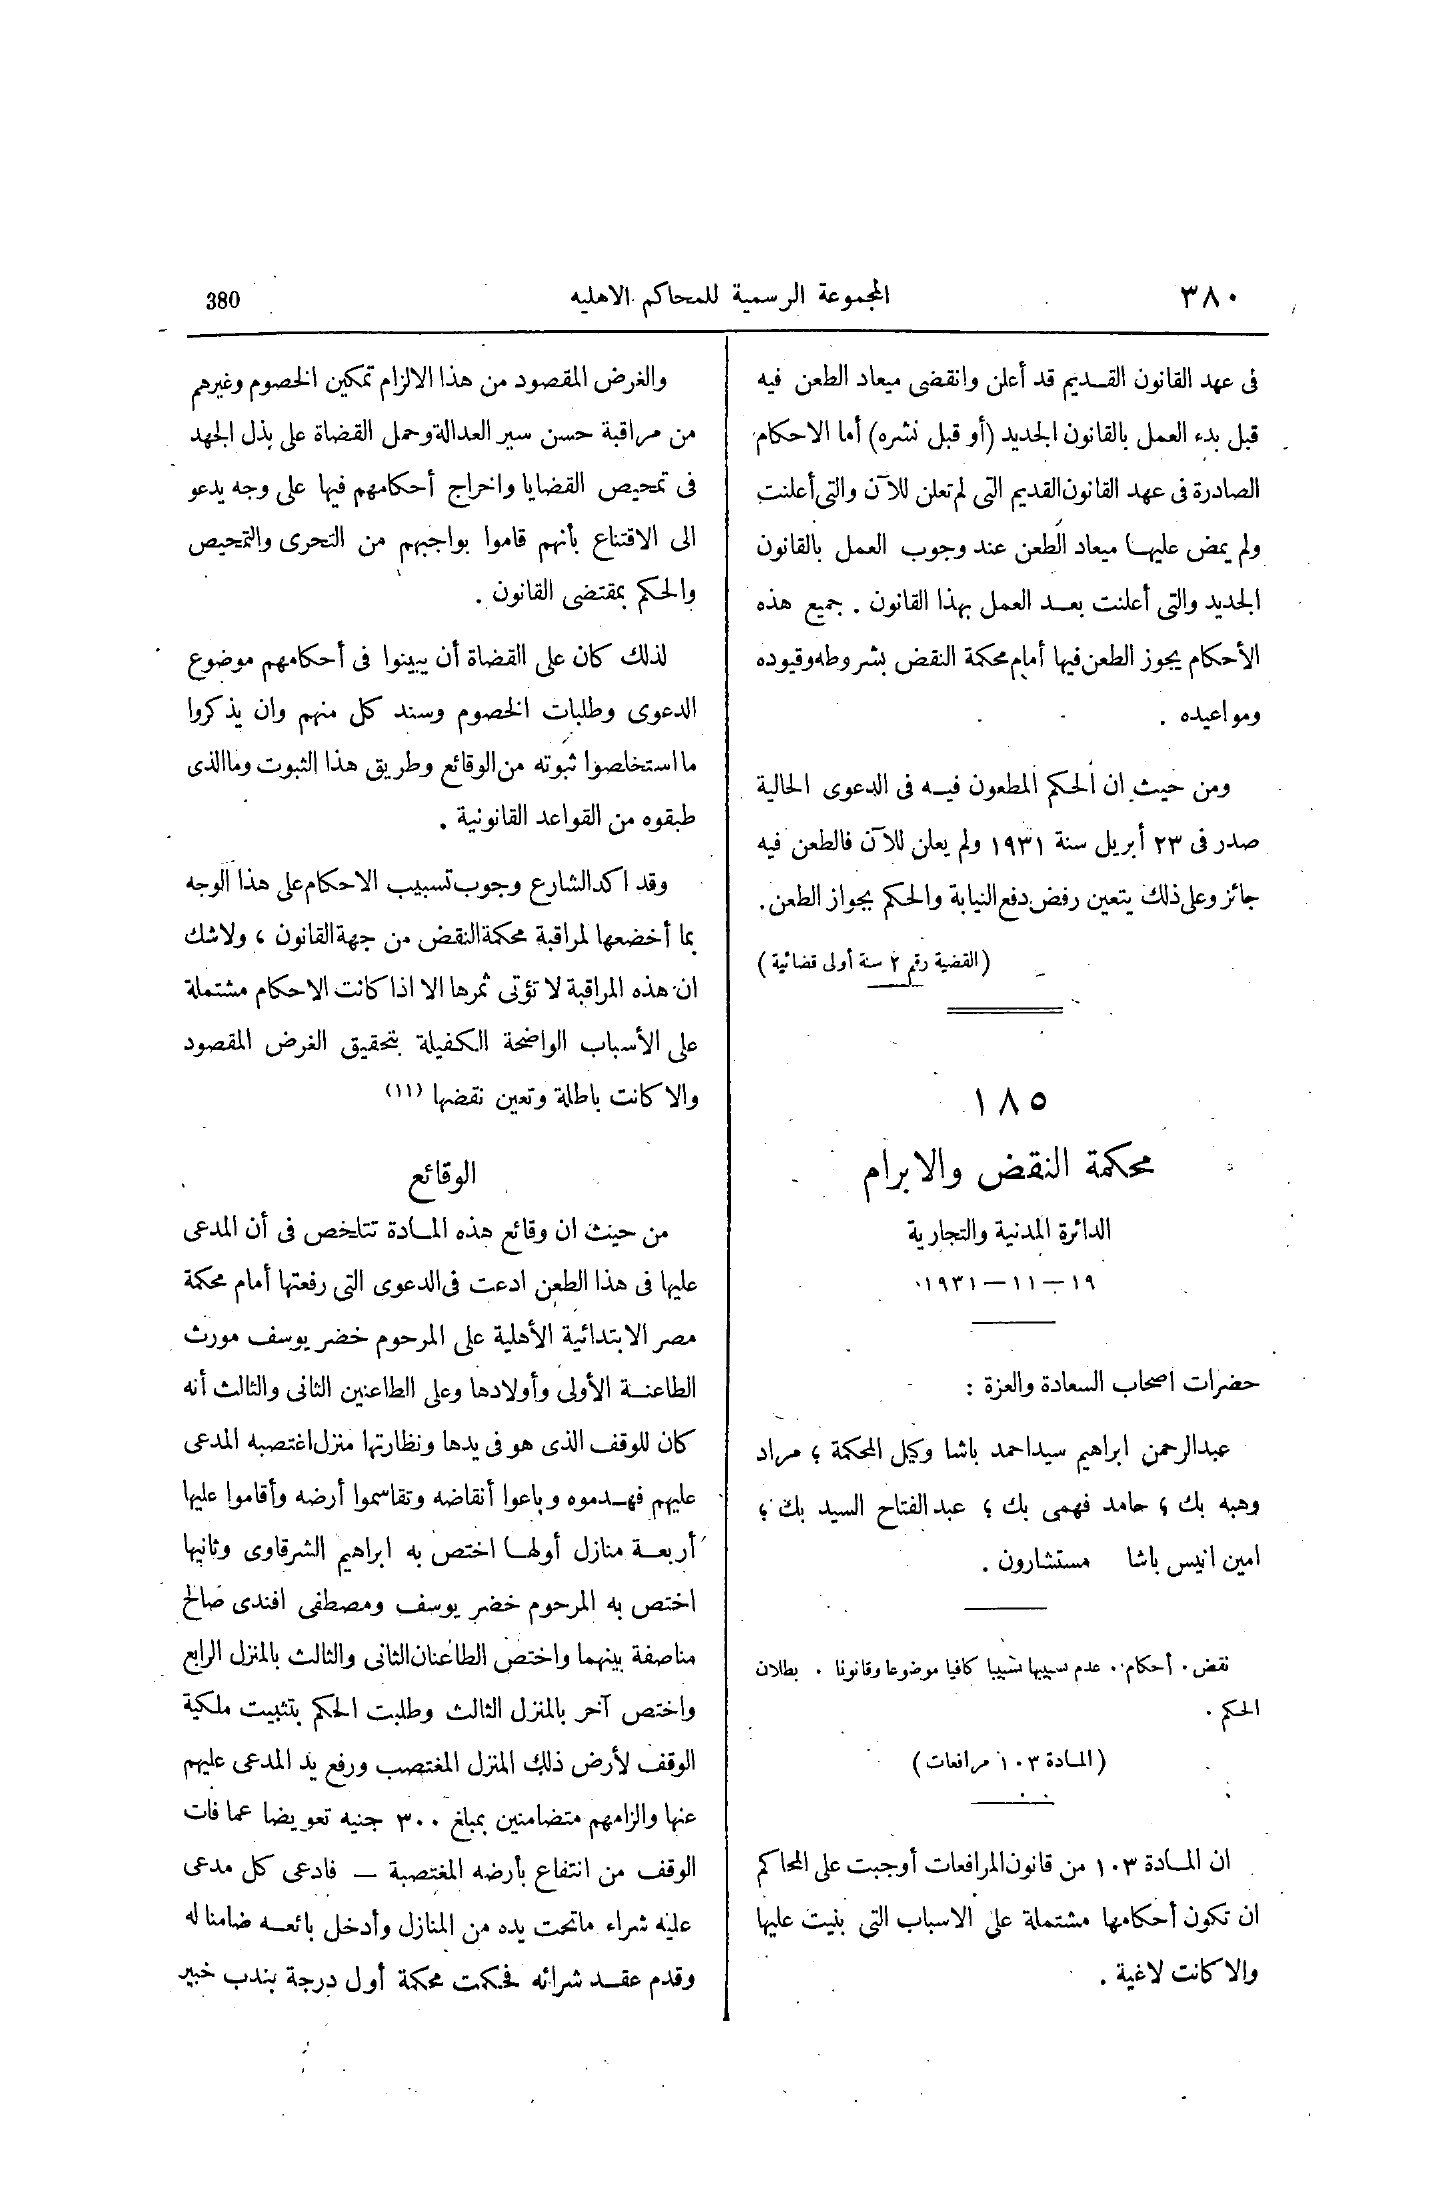 ٣٨٠
المجموعة الرسمية للمحاكم الاهليه
380
فى عهد القانون القديم قد أعلن وانقضى ميعاد الطعن فيه
قبل بدء العمل بالقانون الجديد (أو قبل نشره) أما الاحكام
الصادرة فى عهد القانون القديم التى لم تعلن للآن والتى أعلنت
ولم يمض عليها ميعاد الطعن عند وجوب العمل بالقانون
الجديد والتى أعلنت بعد العمل بهذا القانون . جميع هذه
الأحكام يجوز الطعن فيها أمام محكمة النقض بشروطه وقيوده
ومواعيده .
ومن حيث ان الحكم المطعون فيه فى الدعوى الحالية
صدر فى ٢٣ أبريل سنة ١٩٣١ ولم يعلن للآن فالطعن فيه
جائز وعلى ذلك يتعين رفض دفع النيابة والحكم بجواز الطعن.
(القضية رقم ٢ سنة أولى قضائية)
١٨٥
محكمة النقض والابرام
الدائرة المدنية والتجارية
١٩ — ١١ — ١٩٣١
حضرات اصحاب السعادة والعزة :
عبدالرحمن ابراهيم سيداحمد باشا وكيل المحكمة ؛ مراد
وهبه بك ؛ حامد فهمى بك ؛ عبد الفتاح السيد بك ؛
امين انيس باشا مستشارون .
نقض . أحكام . عدم تسبيبها تسبيبا كافيا موضوعا وقانونا . بطلان
الحكم .
(المادة ١٠٣ مرافعات)
ان المادة ١٠٣ من قانون المرافعات أوجبت على المحاكم
ان تكون أحكامها مشتملة على الاسباب التى بنيت عليها
والا كانت لاغية .
والغرض المقصود من هذا الالزام تمكين الخصوم وغيرهم
من مراقبة حسن سير العدالة وحمل القضاة على بذل الجهد
فى تمحيص القضايا واخراج أحكامهم فيها على وجه يدعو
الى الاقتناع بأنهم قاموا بواجبهم من التحرى والتمحيص
والحكم بمقتضى القانون .
لذلك كان على القضاة أن يبينوا فى أحكامهم موضوع
الدعوى وطلبات الخصوم وسند كل منهم وان يذكروا
ما استخلصوا ثبوته من الوقائع وطريق هذا الثبوت وما الذى
طبقوه من القواعد القانونية .
وقد اكد الشارع وجوب تسبيب الاحكام على هذا الوجه
بما أخضعها لمراقبة محكمة النقض من جهة القانون ، ولا شك
ان هذه المراقبة لا تؤتى ثمرها الا اذا كانت الاحكام مشتملة
على الأسباب الواضحة الكفيلة بتحقيق الغرض المقصود
والا كانت باطلة وتعين نقضها (١١)
الوقائع
من حيث ان وقائع هذه المادة تتلخص فى أن المدعى
عليها فى هذا الطعن ادعت فى الدعوى التى رفعتها أمام محكمة
مصر الابتدائية الأهلية على المرحوم خضر يوسف مورث
الطاعنة الأولى وأولادها وعلى الطاعنين الثانى والثالث أنه
كان للوقف الذى هو فى يدها ونظارتها منزل اغتصبه المدعى
عليهم فهدموه وباعوا أنقاضه وتقاسموا أرضه وأقاموا عليها
أربعة منازل أولها اختص به ابراهيم الشرقاوى وثانيها
اختص به المرحوم خضر يوسف ومصطفى افندى صالح
مناصفة بينهما واختص الطاعنان الثانى والثالث بالمنزل الرابع
واختص آخر بالمنزل الثالث وطلبت الحكم بتثبيت ملكية
الوقف لأرض ذلك المنزل المغتصب ورفع يد المدعى عليهم
عنها والزامهم متضامنين بمبلغ ٣٠٠ جنيه تعويضا عما فات
الوقف من انتفاع بأرضه المغتصبة — فادعى كل مدعى
عليه شراء ماتحت يده من المنازل وأدخل بائعه ضامنا له
وقدم عقد شرائه فحكمت محكمة أول درجة بندب خبير